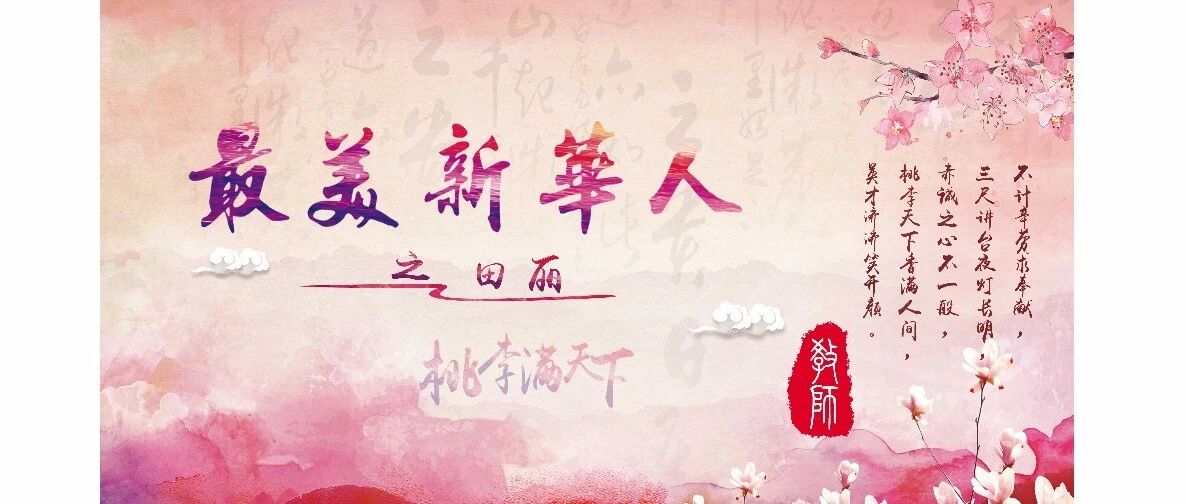 最美新華人
之田丽
桃李满天下
不计辛劳求奉献，
三尺讲台夜灯长明，
赤诚之心不一般，
桃李天下香满人间，
英才济济笑开颜。
教師